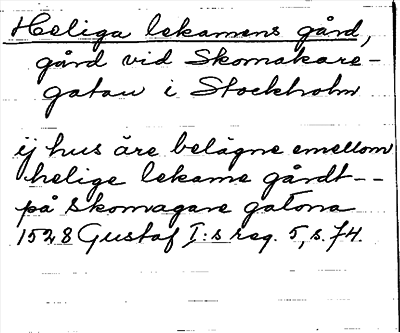 Heliga lekamens gård,
gård vid Skomakare-
gatan i Stockholm
ij hus äre belägne emellom
helige lekame gårdt--
på skomagare gatona
1528 Gustaf I:s reg. 5, s. 74.